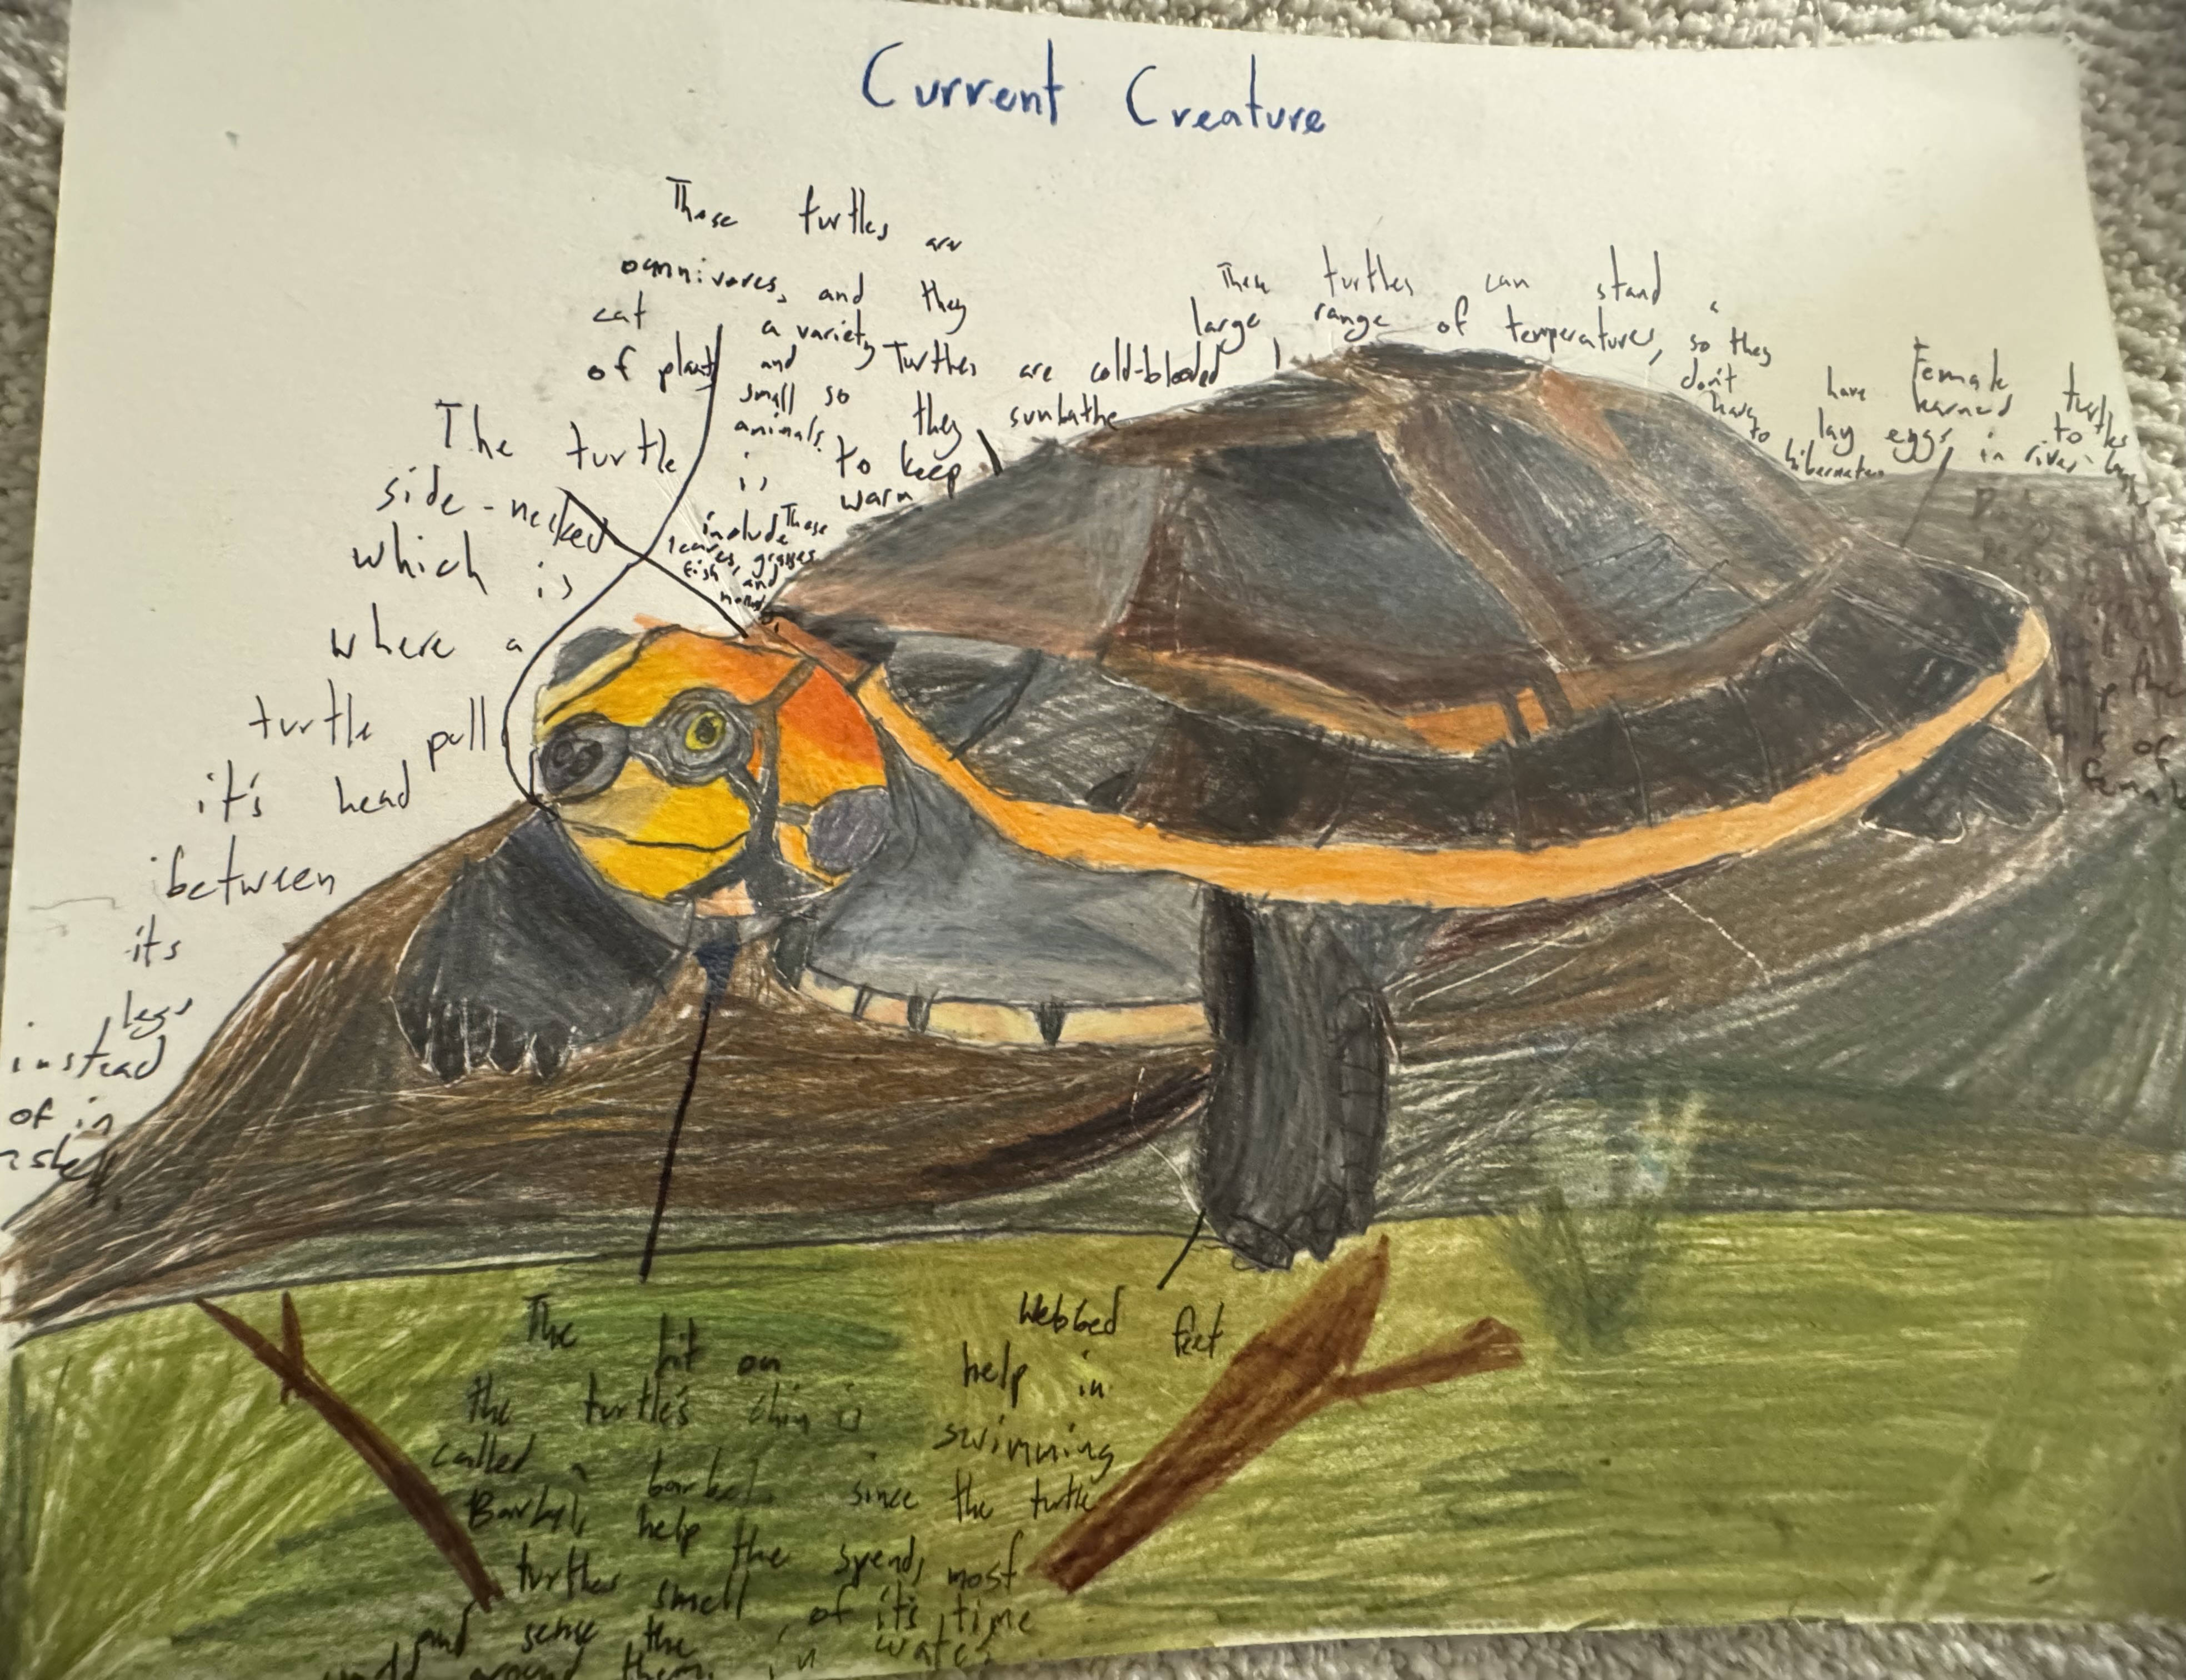 Current Creature
These turtles are
omnivores, and they
eat a variety
of plants and
small
animals.
These
include
leaves, grasses
fish, and
Turtles are cold-blooded
so they sunbathe
to keep
warm
These turtles can stand a
large range of temperatures, so they
don't
have
to
hibernate
Female turtles
have learned to
lay eggs in river
The turtle is
side-necked
which is
where a
turtle pull
it's head
between
its
legs
instead
of in
shell.
of
female
The bit on
the turtle's chin is
called a barbel.
Barbels help the
turtles smell
and sense the
world around them.
Webbed feet
help in
swimming
since the turtle
spends most
of it's time
in water